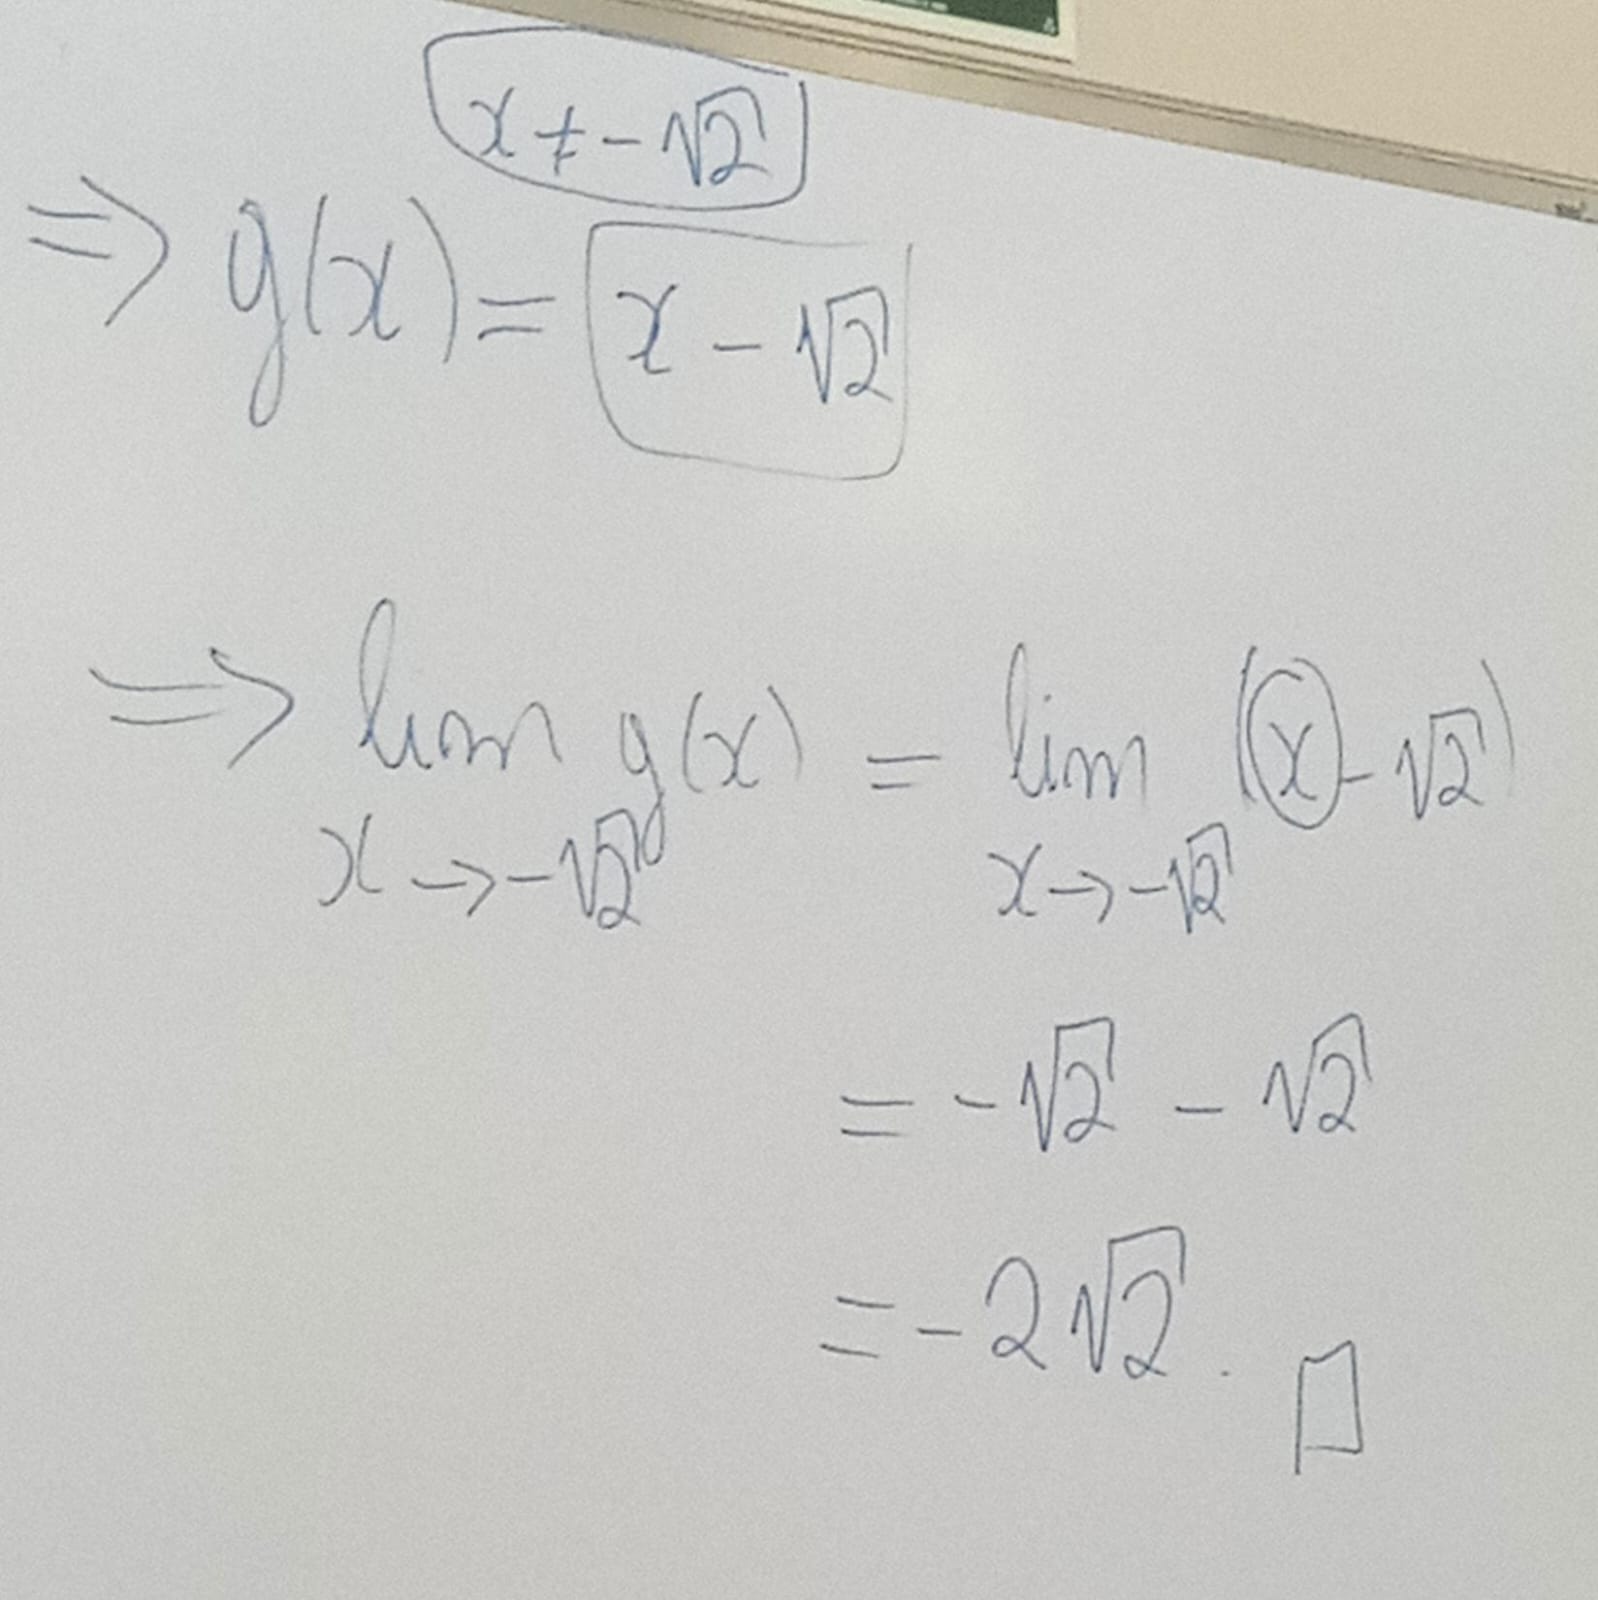 x ≠ -√2
⇒ g(x) = x - √2
⇒ lim g(x) = lim (x - √2)
x → -√2 x → -√2
= -√2 - √2
= -2√2. □